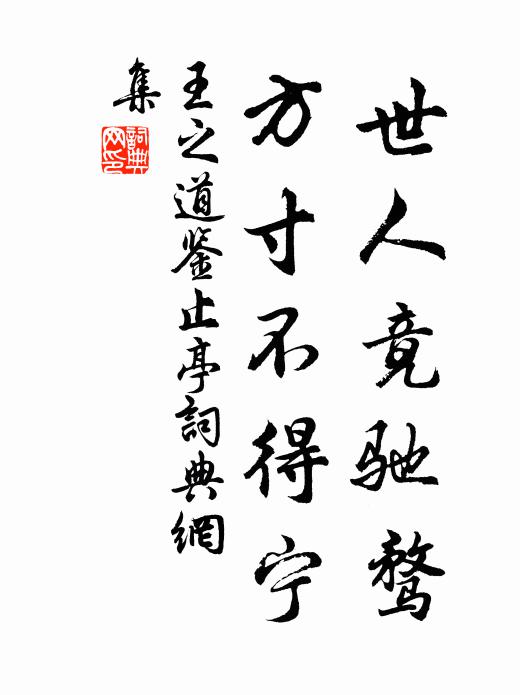 世人竟驰骛
方寸不得宁
王之道鉴止亭詞典網
集
詞典网印